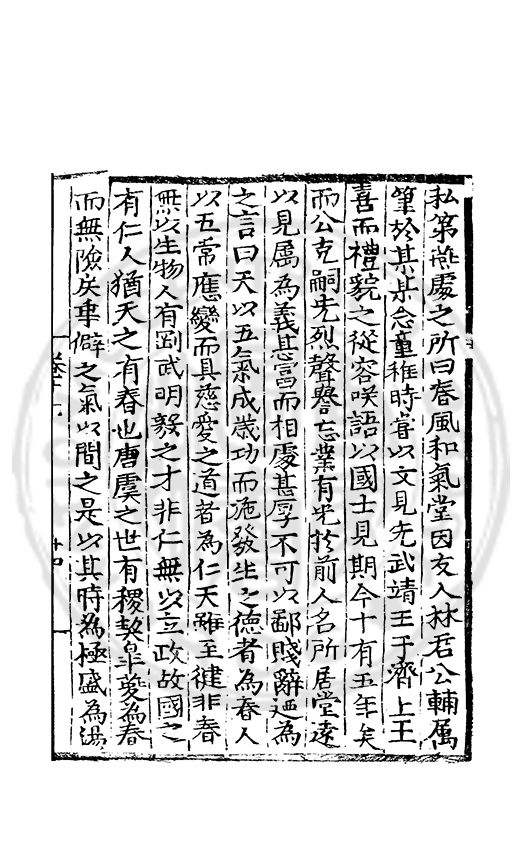 私第燕處之所曰春風和氣堂因友人林君公輔属
筆於某某念童稚時嘗以文見先武靖王于濟上王
喜而禮貌之從容咲語以國士見期今十有五年矣
而公克嗣先烈聲譽志業有光於前人名所居堂遠
以見属為義甚富而相處甚厚不可以鄙賤辭廼為
之言曰天以五氣成歳功而施發生之德者為春人
以五常應變而具慈愛之道者為仁天雖至健非春
無以生物人有剛武明毅之才非仁無以立政故國之
有仁人猶天之有春也唐虞之世有稷契皐夔為春
而無險戾乖僻之氣以間之是以其時為極盛為湯
卷十
十四